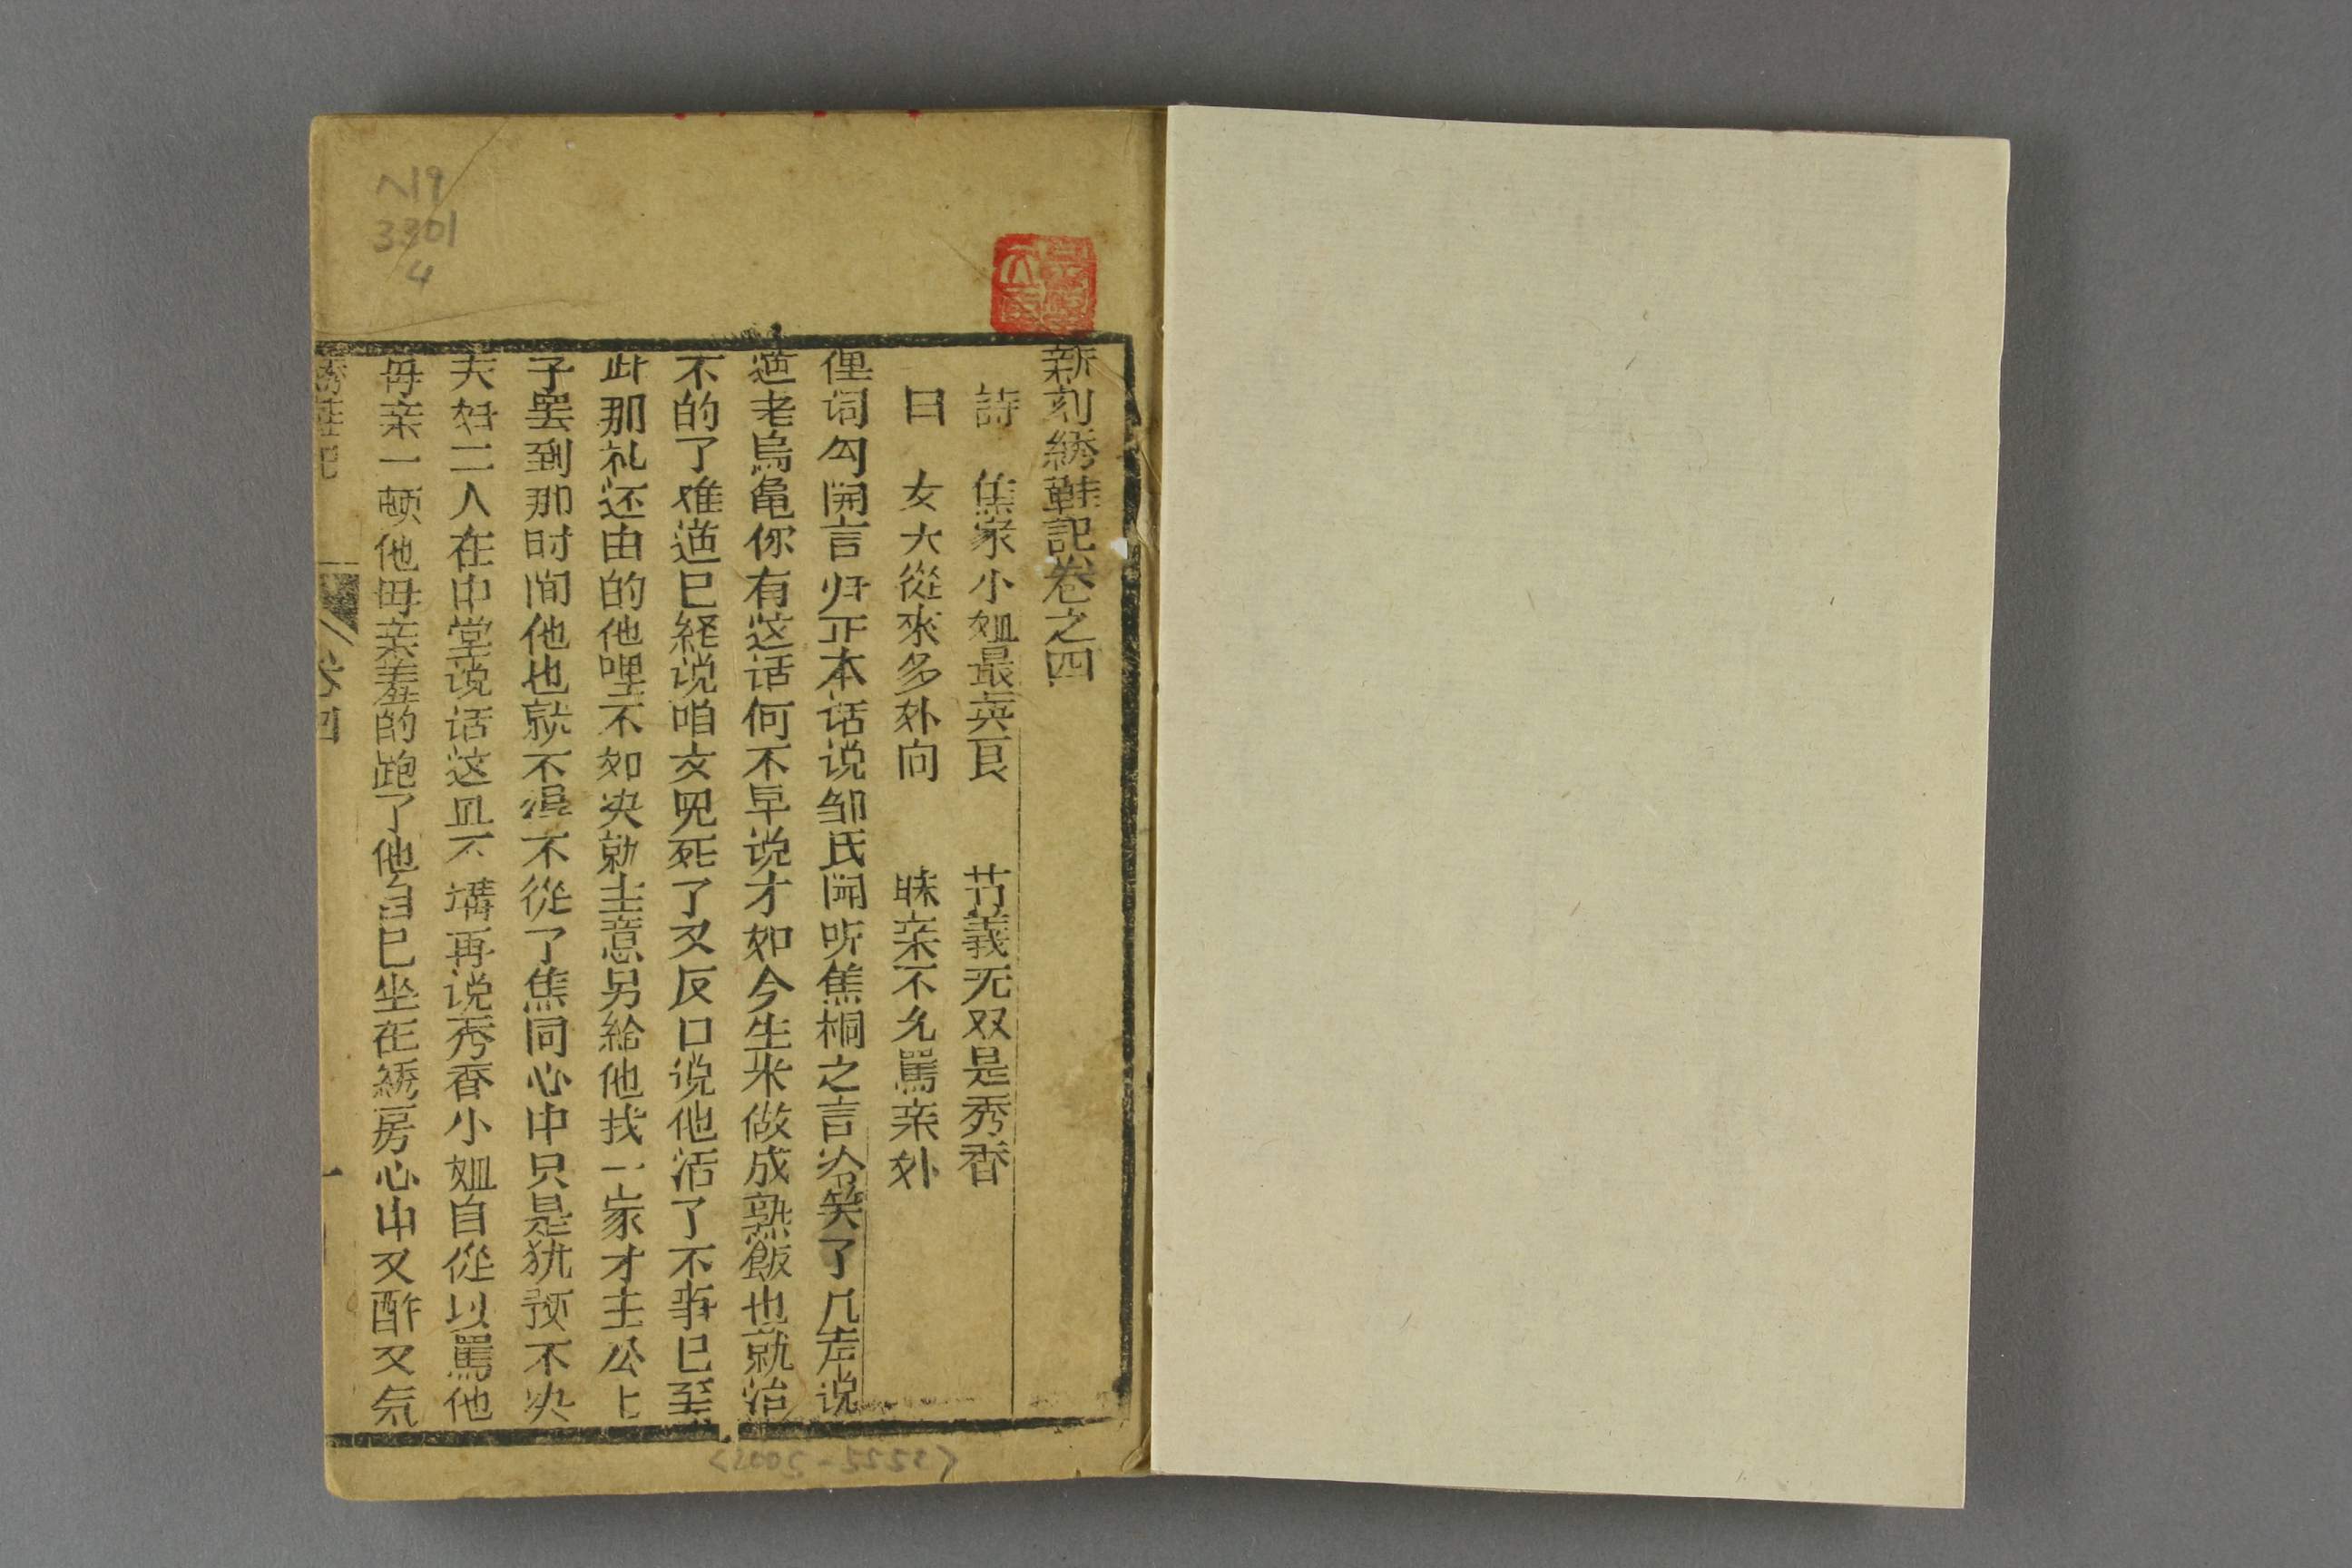 新刻綉鞋記卷之四
詩 焦家小姐最英良 节義无双是秀香
曰 女大從來多外向 昧亲不允罵亲外
俚词勾開言归正本话说邹氏闻听焦桐之言冷笑了几声说
道老烏亀你有这话何不早说才如今生米做成熟飯也就治
不的了难道已経说咱女児死了又反口说他活了不事已至
此那礼还由的他哩不如决就主意另給他找一家才主公上
子罢到那时间他也就不不從了焦同心中只是犹预不决
夫妇二人在中堂说话这且不講再说秀香小姐自從以罵他
毋亲一顿他毋亲羞的跑了他自已坐在綉房心中又酢又気
綉鞋記 卷四 一
N19
3301
4
(3555-3005)